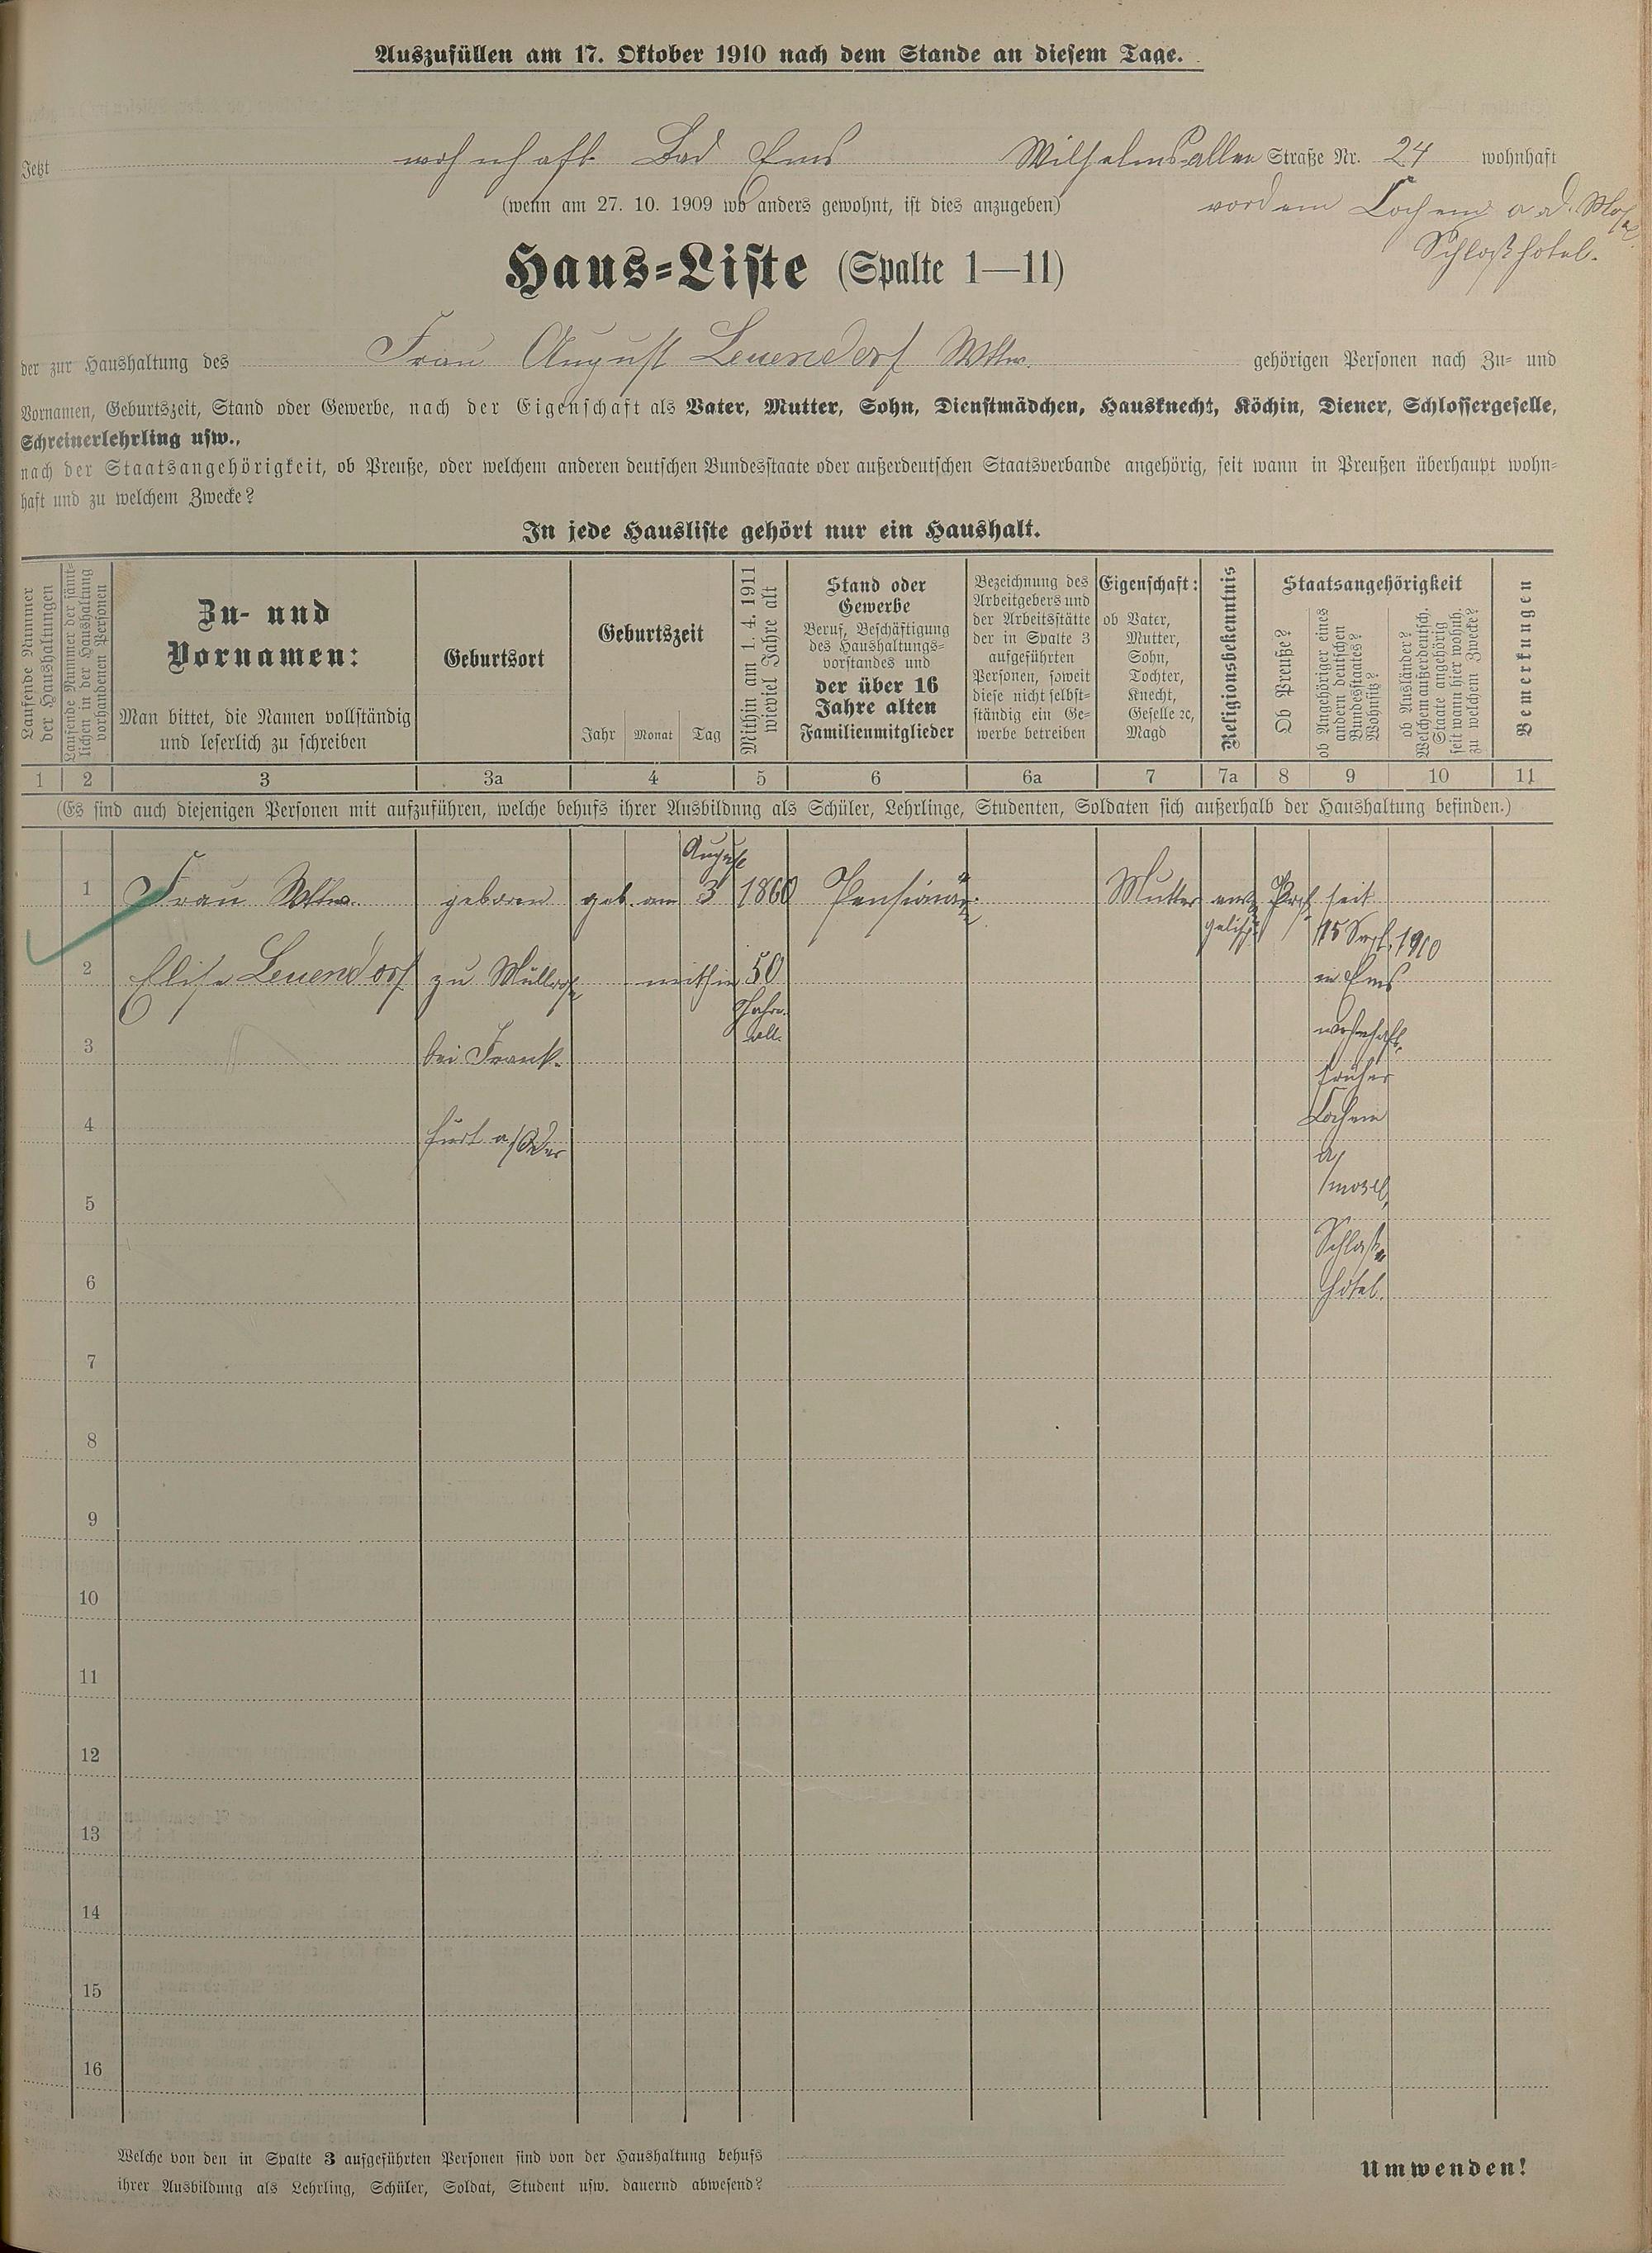 Auszufüllen am 17. Oktober 1910 nach dem Stande an diesem Tage.
Jetzt wohnhaft Bad Ems Wilhelmsallee Straße Nr. 24 wohnhaft
(wenn am 27. 10. 1909 wo anders gewohnt, ist dies anzugeben) vordem Cochem a. d. Mosel
Schloßhotel.
Haus-Liste (Spalte 1—11)
der zur Haushaltung des Frau August Leuendorf Wttw. gehörigen Personen nach Zu- und
Vornamen, Geburtszeit, Stand oder Gewerbe, nach der Eigenschaft als Vater, Mutter, Sohn, Dienstmädchen, Hausknecht, Köchin, Diener, Schlossergeselle,
Schreinerlehrling usw.,
nach der Staatsangehörigkeit, ob Preuße, oder welchem anderen deutschen Bundesstaate oder außerdeutschen Staatsverbande angehörig, seit wann in Preußen überhaupt wohn-
haft und zu welchem Zwecke?
In jede Hausliste gehört nur ein Haushalt.
Laufende Nummer
der Haushaltungen
Laufende Nummer der sämt-
lichen in der Haushaltung
vorhandenen Personen
Zu- und
Vornamen:
Man bittet, die Namen vollständig
und leserlich zu schreiben
Geburtsort
Geburtszeit
Jahr Monat Tag
Mithin am 1. 4. 1911
wieviel Jahre alt
Stand oder
Gewerbe
Beruf, Beschäftigung
des Haushaltungs-
vorstandes und
der über 16
Jahre alten
Familienmitglieder
Bezeichnung des
Arbeitgebers und
der Arbeitsstätte
der in Spalte 3
aufgeführten
Personen, soweit
diese nicht selbst-
ständig ein Ge-
werbe betreiben
Eigenschaft:
ob Vater,
Mutter,
Sohn,
Tochter,
Knecht,
Geselle ec,
Magd
Religionsbekenntnis
Staatsangehörigkeit
Ob Preuße?
ob Angehöriger eines
andern deutschen
Bundesstaates?
Wohnsitz?
ob Ausländer?
Welchem außerdeutsch.
Staate angehörig
seit wann hier wohnh.
zu welchem Zwecke?
Bemerkungen
1 2 3 3a 4 5 6 6a 7 7a 8 9 10 11
(Es sind auch diejenigen Personen mit aufzuführen, welche behufs ihrer Ausbildung als Schüler, Lehrlinge, Studenten, Soldaten sich außerhalb der Haushaltung befinden.)
August
1 Frau Wttw. geboren geb. am 3 1860 Pensionär. Mutter evan- seit
gelisch 15 Sept. 1910
2 Elise Leuendorf zu mithin 50 in Ems
Jahre
alt.
wohnhaft,
3 bei Frank-
früher
4 furt a/Oder Cochem
a/
5 /Mosel,
Schloß-
6 Hotel.
7
8
9
10
11
12
13
14
15
16
Welche von den in Spalte 3 aufgeführten Personen sind von der Haushaltung behufs
ihrer Ausbildung als Lehrling, Schüler, Soldat, Student usw. dauernd abwesend?
Umwenden!